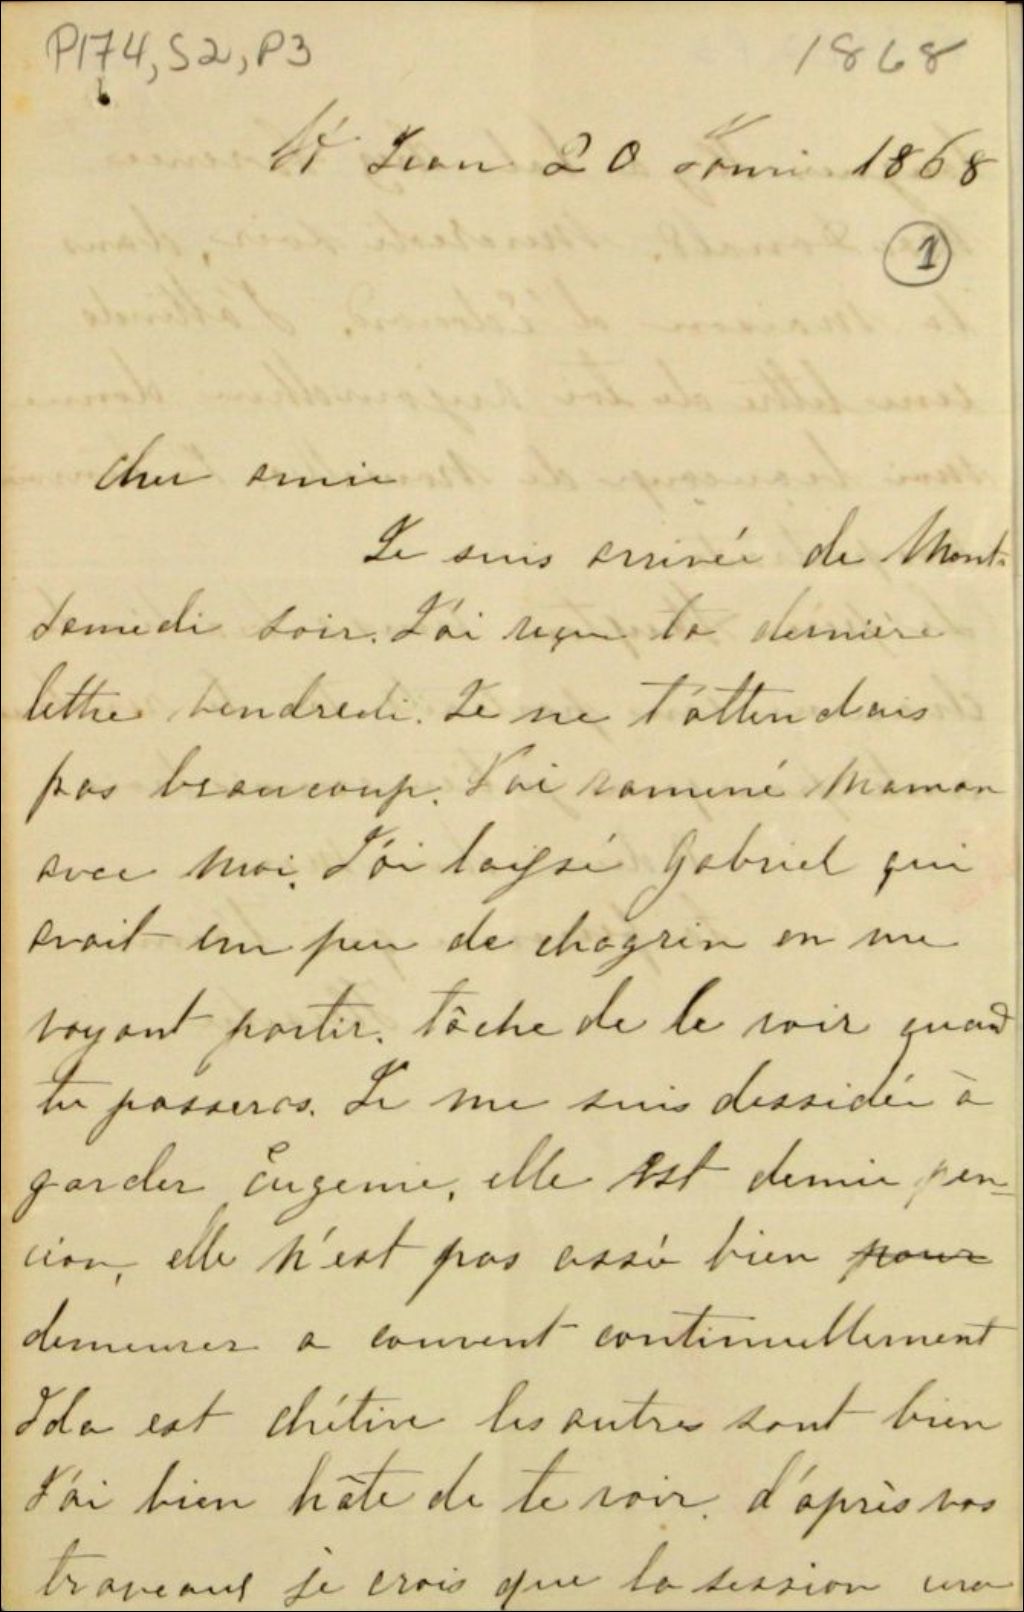 P174, S2, P3
1868
6
St Jean 20 1868
1
cher amie
Je suis arrivée de Mont.
Samedi soir. J'ai reçu ta dernière
lettre vendredi. Je ne t'attendais
pas beaucoup. J'ai ramené Maman
avec moi. J'ai laissé Gabriel qui
avait un peu de chagrin en me
voyant partir. tâche de le voir quand
tu passeras. Je me suis dessidée à
garder Eugenie, elle est demie pen-
cion, elle n'est pas assé bien pour
demeurer a couvent continuellement
Ida est chétive les autres sont bien
J'ai bien hâte de te voir. d'après vos
traveaux je crois que la session